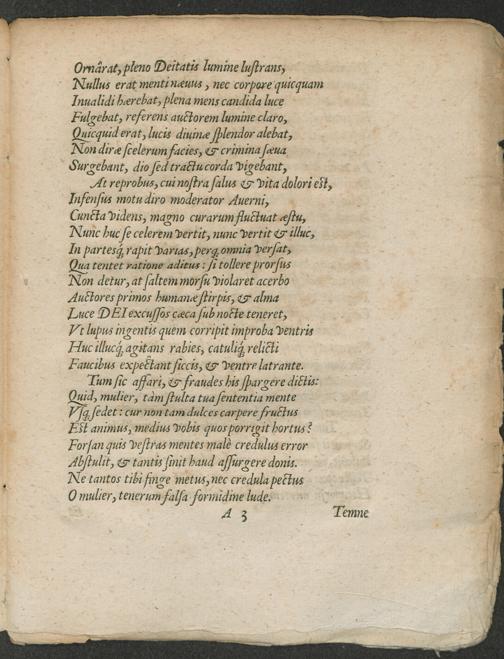 Ornârat, pleno Deitatis lumine luſtrans,
Nullus erat menti nævus, nec corpore quicquam
Invalidi hærebat, plena mens candida luce
Fulgebat, referens auctorem lumine claro,
Quicquid erat, lucis divinæ ſplendor alebat,
Non diræ ſcelerum facies, & crimina ſæva
Surgebant, dio ſed tractu corda vigebant,
At reprobus, cui noſtra ſalus & vita dolori eſt,
Infenſus motu diro moderator Averni,
Cuncta videns, magno curarum fluctuat æſtu,
Nunc huc ſe celerem vertit, nunc vertit & illuc,
In partesq́; rapit varias, perq; omnia verſat,
Qua tentet ratione aditus: ſi tollere prorſus
Non detur, at ſaltem morſu violaret acerbo
Auctores primos humanæ ſtirpis, & alma
Luce DEI excuſſos cæca ſub nocte teneret,
Vt lupus ingentis quem corripit improba ventris
Huc illucq́; agitans rabies, catuliq́; relicti
Faucibus expectant ſiccis, & ventre latrante.
Tum ſic affari, & fraudes his ſpargere dictis:
Quid, mulier, tàm ſtulta tua ſententia mente
Vſq; ſedet: cur non tam dulces carpere fructus
Eſt animus, medius vobis quos porrigit hortus?
Forſan quis veſtras mentes malè credulus error
Abſtulit, & tantis ſinit haud aſſurgere donis.
Ne tantos tibi finge metus, nec credula pectus
O mulier, tenerum falſa formidine lude.
A 3 Temne